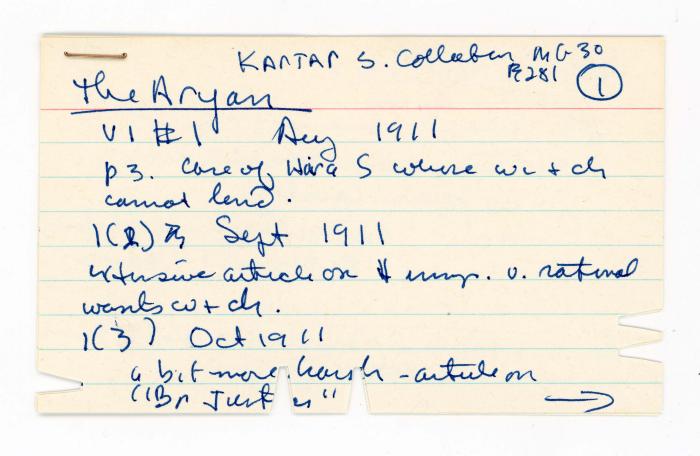 KARTAR S. Collection MG 30
1
The Aryan
V1 #1 Aug 1911
p3. Case of Hira S where w + ch
cannot land.
1(2) Sept 1911
extensive article on immig. v. national
wants w + ch.
1(3) Oct 1911
a bit more harsh - article on
"Br Justice"
→